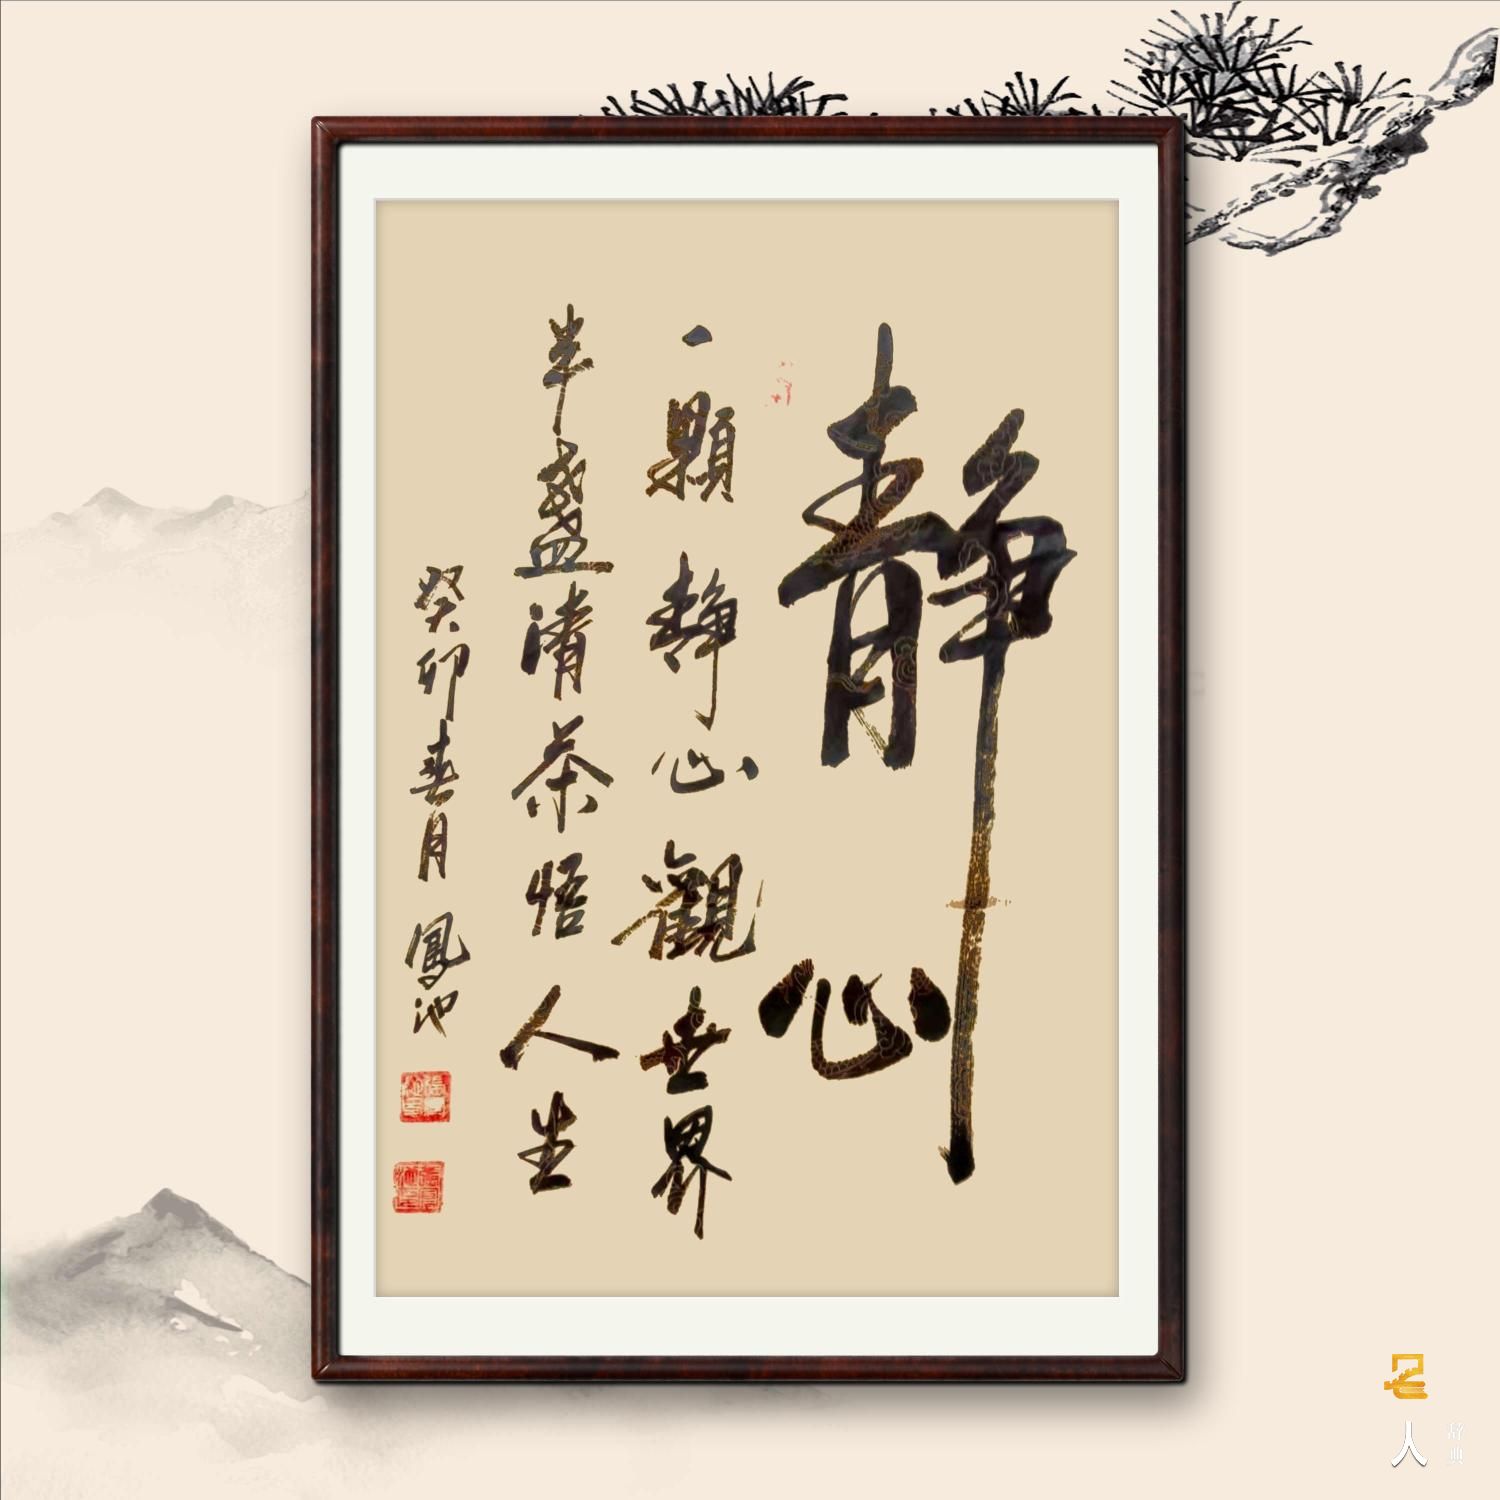 静心
一顆静心觀世界
半盞清茶悟人生
癸卯春月 鳳池
名人
辞典